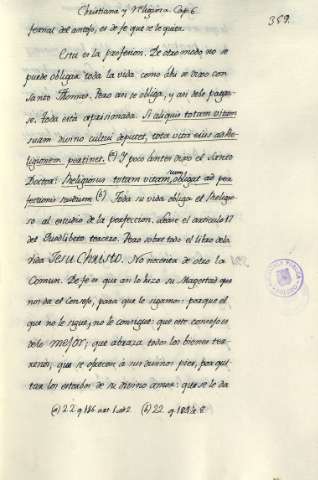 Christiana y Religiosa. Cap. 6
359.
fernal del antojo, es de fe que se le quita.
Esta es la profesion. De otro modo no se
puede obligar toda la vida como ahi se dexo con
Santo Thomas. Pero asi se obliga, y asi debe pagar-
se. Toda está aprisionada. Si aliquis totam vitam
suam divino cultui deputet, tota vita eius ad Re-
ligionem pertinet. (a) Y poco antes dixo el Santo
Doctor: Religionis totam vitam suam obligat ad per-
fectionis studium (b). Toda su vida obliga el Religio-
so al estudio de la perfeccion. Vease el articulo 17
del Quodlibeto tercero. Pero sobre todo el libro de la
vida Jesu Christo. No necesita de otro la
Comun. De fe es que asi lo hizo su Magestad que
nos da el Consejo, para que le sigamos: porque el
que no le sigue, no le consigue: que este consejo es
de lo mejor; que abraza todos los bienes ter-
renos, que se ofrecen a sus divinos pies, por qui-
tar los estorbos de su divino amor: que se le da
(a) 22 q 186 art 1. ad 2 (b) 22. q